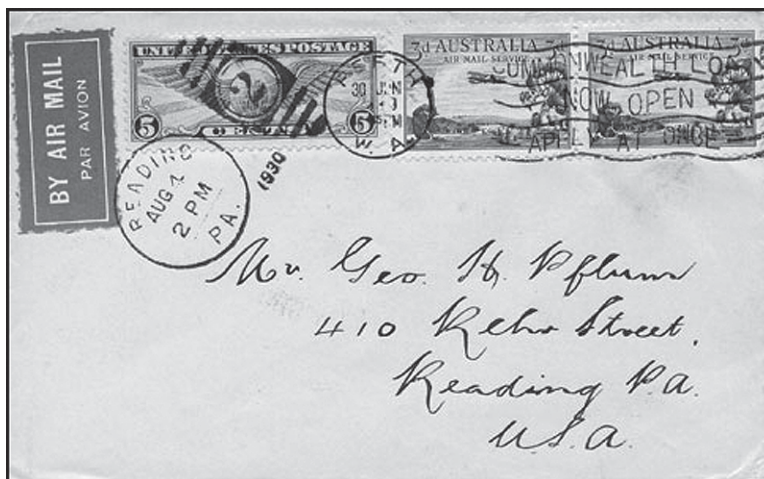 BY AIR MAIL
PAR AVION
UNITED STATES POSTAGE
5 CENTS 5
PERTH
30 JUN
W.A.
3d AUSTRALIA 3d
AIR MAIL SERVICE
3d AUSTRALIA 3d
AIR MAIL SERVICE
COMMONWEALTH LOAN
NOW OPEN
APPLY AT ONCE
READING
AUG 4
2 PM
PA.
1930
Mr. Geo. H. Pflum
410 Rehr Street.
Reading Pa.
U.S.A.